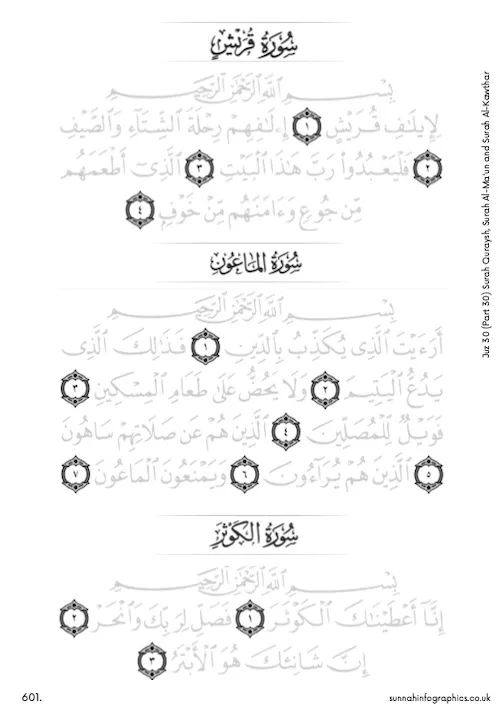 سُورَةُ قُرَيْشٍ
بِسْمِ ٱللَّهِ ٱلرَّحْمَٰنِ ٱلرَّحِيمِ
لِإِيلَٰفِ قُرَيْشٍ ١ إِۦلَٰفِهِمْ رِحْلَةَ ٱلشِّتَآءِ وَٱلصَّيْفِ
٢ فَلْيَعْبُدُوا۟ رَبَّ هَٰذَا ٱلْبَيْتِ ٣ ٱلَّذِىٓ أَطْعَمَهُم
مِّن جُوعٍ وَءَامَنَهُم مِّنْ خَوْفٍۭ ٤
سُورَةُ المَاعُونِ
بِسْمِ ٱللَّهِ ٱلرَّحْمَٰنِ ٱلرَّحِيمِ
أَرَءَيْتَ ٱلَّذِى يُكَذِّبُ بِٱلدِّينِ ١ فَذَٰلِكَ ٱلَّذِى
يَدُعُّ ٱلْيَتِيمَ ٢ وَلَا يَحُضُّ عَلَىٰ طَعَامِ ٱلْمِسْكِينِ ٣
فَوَيْلٌ لِّلْمُصَلِّينَ ٤ ٱلَّذِينَ هُمْ عَن صَلَاتِهِمْ سَاهُونَ
٥ ٱلَّذِينَ هُمْ يُرَآءُونَ ٦ وَيَمْنَعُونَ ٱلْمَاعُونَ ٧
سُورَةُ الكَوْثَرِ
بِسْمِ ٱللَّهِ ٱلرَّحْمَٰنِ ٱلرَّحِيمِ
إِنَّآ أَعْطَيْنَٰكَ ٱلْكَوْثَرَ ١ فَصَلِّ لِرَبِّكَ وَٱنْحَرْ ٢
إِنَّ شَانِئَكَ هُوَ ٱلْأَبْتَرُ ٣
Juz 30 (Part 30) Surah Quraysh, Surah Al-Ma'un and Surah Al-Kawthar
601.
sunnahinfographics.co.uk